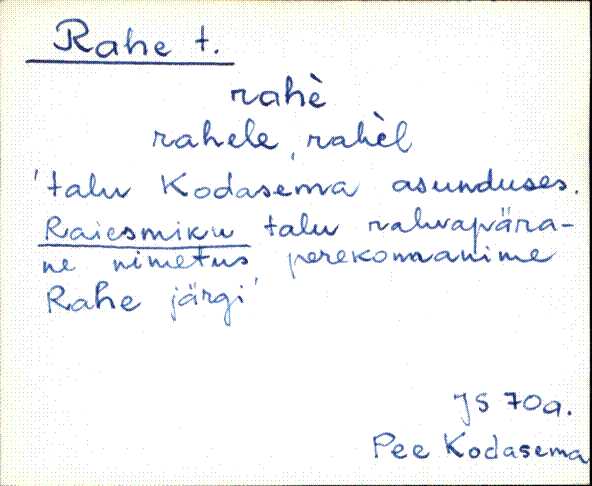 Rahe t.
rahè
rahele, rahèl
'talu Kodasema asunduses.
Raiesmiku talu rahvapära-
ne nimetus, perekonnanime
Rahe järgi'
JS 70a.
Pee Kodasema